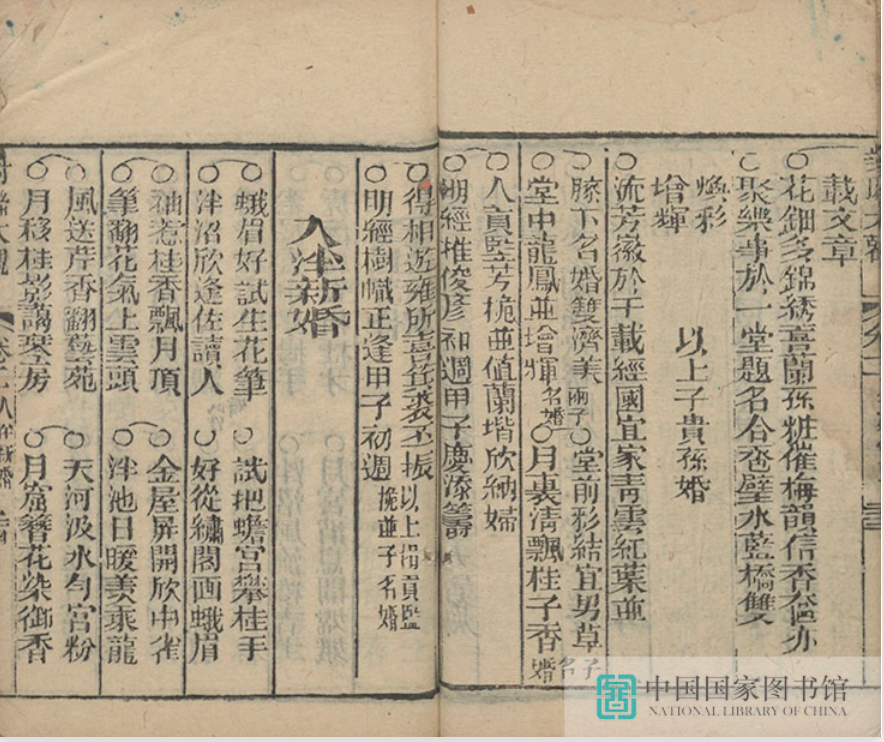 載文章
○花鈿多錦綉喜蘭孫粧催梅韻信香奩亦
聚樂事於一堂題名合卺璧水藍橋雙
煥彩
增輝
以上子貴孫婚
○流芳徽於千載經國宜家靑雲紅葉並
○膝下名婚雙濟美兩子
堂中龍鳳並增輝名婚
○堂前彩結宜男草子名
月裏清飄桂子香婚
○人貢堅芳桅並値蘭堦欣納婦
○明經推俊彦和週甲子慶添籌
○得相遊雍所喜箕裘丕振以上捐貢監
○明經樹幟正逢甲子初週挽並子名婚
入泮新婚
○蛾眉好試生花筆
○試把蟾宮攀桂手
○泮沼欣逢佐讀人
○好從繡閣画蛾眉
○袖惹桂香飄月頂
○金屋屏開欣中雀
○筆翻花氣上雲頭
○泮池日暖美乘龍
○風送芹香翻藝苑
○天河汲水勻宮粉
○月移桂影講琴房
○月窟簪花染御香
卷二 入泮新婚
中国国家图书馆
NATIONAL LIBRARY OF CHINA